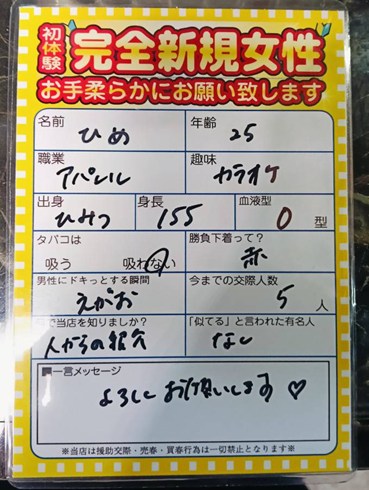 初体験 完全新規女性
お手柔らかにお願い致します
名前 ひめ 年齢 25
職業 アパレル 趣味 カラオケ
出身 ひみつ 身長 155 血液型 O 型
タバコは 吸う 吸わない 勝負下着って? 赤
男性にドキっとする瞬間 えがお 今までの交際人数 5 人
で当店を知りましたか? 人からの紹介 「似てる」と言われた有名人 なし
■一言メッセージ
よろしくお願いします♡
※当店は援助交際・売春・買春行為は一切禁止となります※